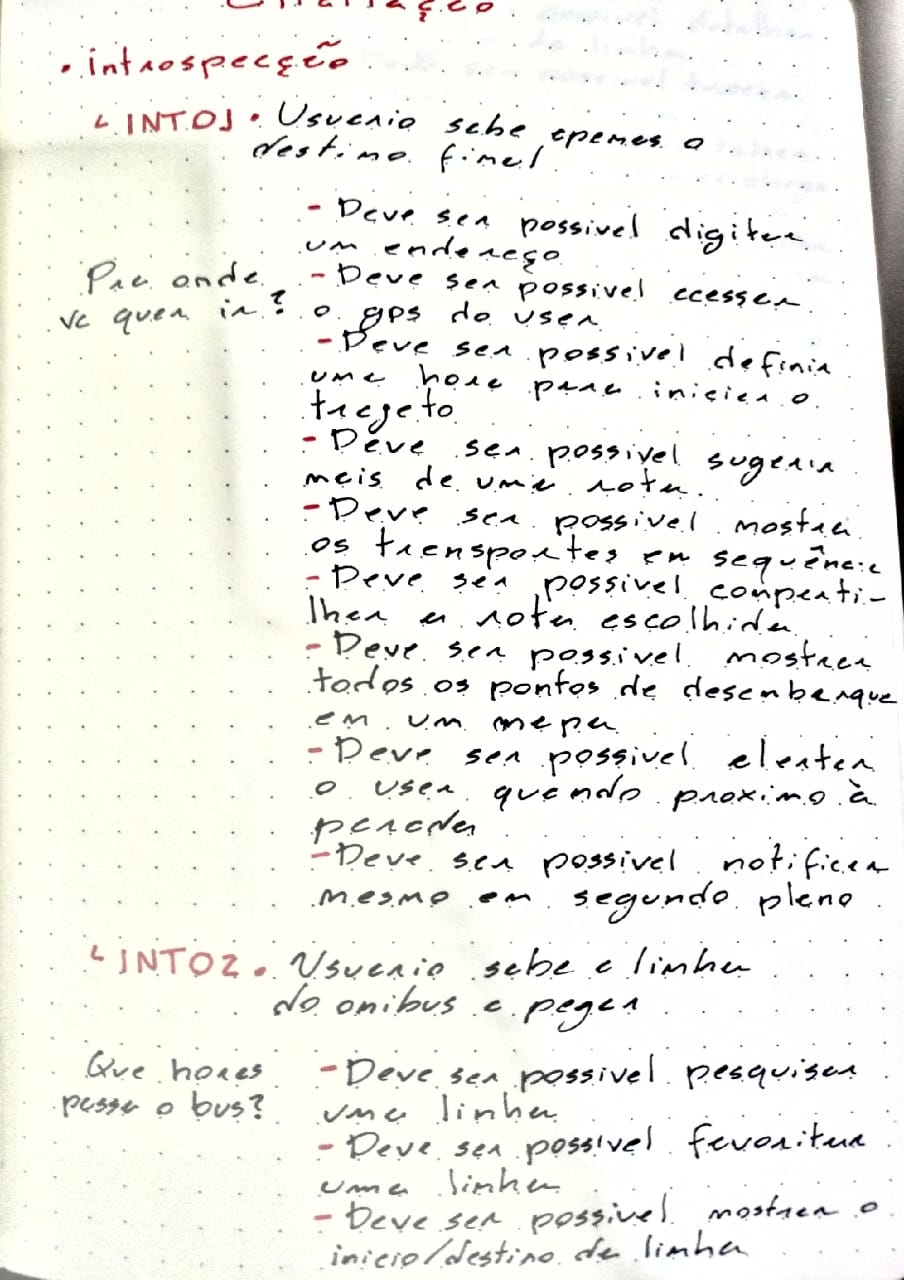 Elicitação.
• introspecção
↳ INT01 • Usuario sabe apenas o
destino final
- Deve ser possivel digitar
um endereço
Pra onde
vc quer ir?
- Deve ser possivel acessar
o gps do user
- Deve ser possivel definir
uma hora para iniciar o
trageto
- Deve ser possivel sugerir
mais de uma rota.
- Deve ser possivel mostrar
os transportes em sequência
- Deve ser possivel comparti-
lhar a rota escolhida
- Deve ser possivel mostrar
todos os pontos de desembarque
em um mapa
- Deve ser possivel alertar
o user quando proximo à
parada
- Deve ser possivel notificar
mesmo em segundo plano
↳ INT02 • Usuario sabe a linha
do onibus a pegar
Que horas
passa o bus?
- Deve ser possivel pesquisar
uma linha
- Deve ser possivel favoritar
uma linha
- Deve ser possivel mostrar o
inicio/destino da linha